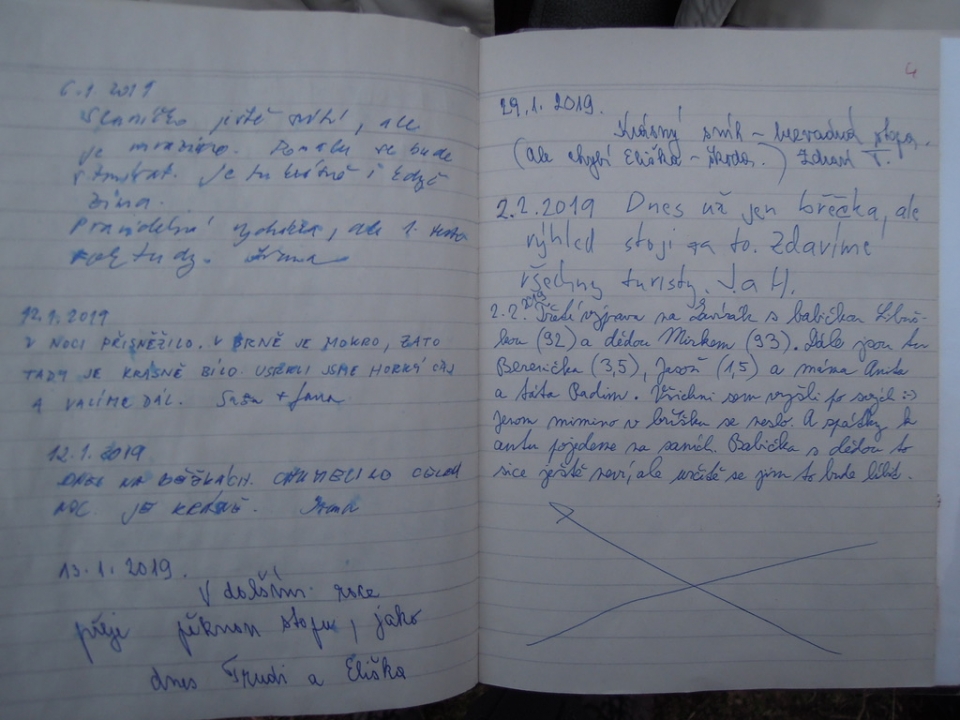 6.1.2019
Sluníčko ještě svítí, ale
je mrazivo. Pomalu se bude
je tu krásně i když
zima.
Pravidelná vycházka, ale 1. tento
rok tudy.
12.1.2019
V NOCI PŘISNĚŽILO. V BRNĚ JE MOKRO, ZATO
TADY JE KRÁSNĚ BÍLO. JSME HORKÝ ČAJ
A VALÍME DÁL. + Jana
12.1.2019
DNES NA BĚŽKÁCH. CHUMELILO CELOU
NOC. JE KRÁSNĚ.
13.1.2019.
V dalším roce
přeje pěknou stopu, jako
dnes Trudi a Eliška
4
29.1.2019.
Krásný sníh – stopa.
(ale chybí Eliška – škoda.) Zdraví T.
2.2.2019 Dnes už jen břečka, ale
výhled stojí za to. Zdavíme
všechny turisty. J. a H.
2.2. 2019 výprava na s babičkou Libuš-
kou (92) a dědou Mirkem (93). Dále jsou tu
Berenička (3,5), (1,5) a máma Anita
a táta Radim. Všichni sem vyšli po svých :-)
jenom mimino v bříšku se neslo. A zpátky k
autu pojedeme na saních. Babička s dědou to
sice ještě neví, ale určitě se jim to bude líbit.